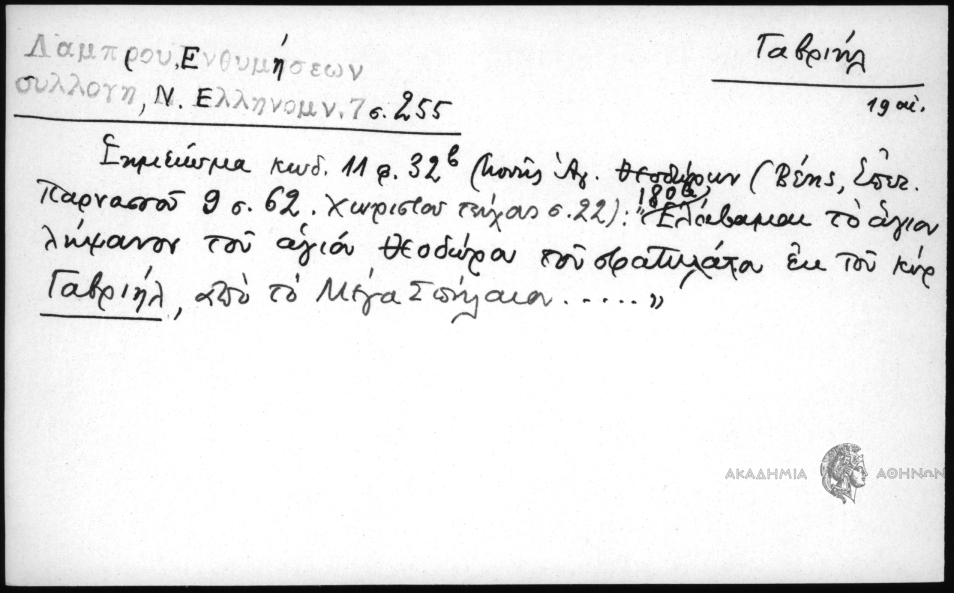 Λάμπρου, Ενθυμήσεων
συλλογή, Ν. Ελληνομν. 7 σ. 255
Γαβριήλ
19 αἰ.
Σημείωμα κωδ. 11 φ. 32β Μονῆς Ἁγ. Θεοδώρων (Βέης, Ἐπετ.
Παρνασσοῦ 9 σ. 62. Χωριστοῦ τεύχους σ. 22): "Ἐλάβαμαι τὸ ἅγιον
λήψανον τοῦ ἁγίου Θεοδώρου τοῦ στρατηλάτου ἐκ τοῦ κύρ
Γαβριήλ, ἀπὸ τὸ Μέγα Σπήλαιον ....."
ΑΚΑΔΗΜΙΑ ΑΘΗΝΩΝ